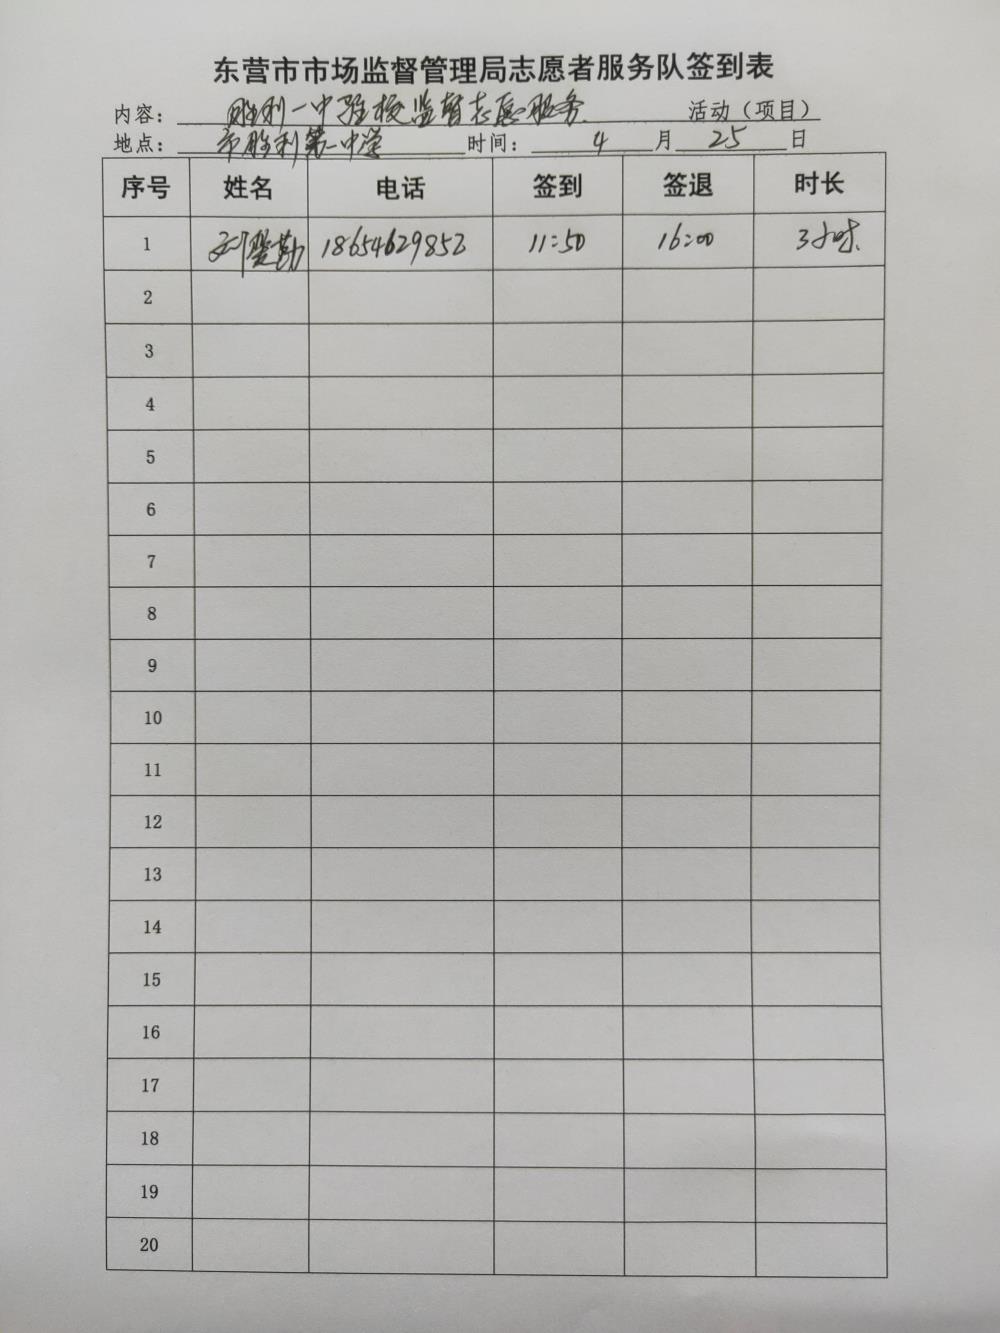 东营市市场监督管理局志愿者服务队签到表
内容：胜利一中驻校监督志愿服务 活动（项目）
地点：市胜利第一中学 时间：4月25日
序号 姓名 电话 签到 签退 时长
1 勤 18654629852 11:50 16:00 3小时
2
3
4
5
6
7
8
9
10
11
12
13
14
15
16
17
18
19
20